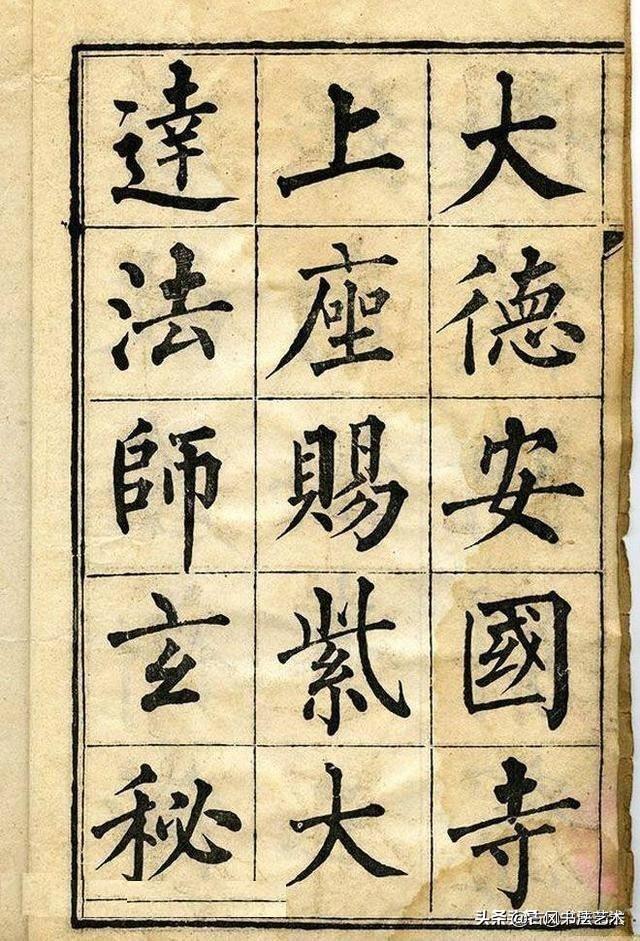 大德安國寺
上座賜紫大
達法師玄秘
头条@古风书法艺术